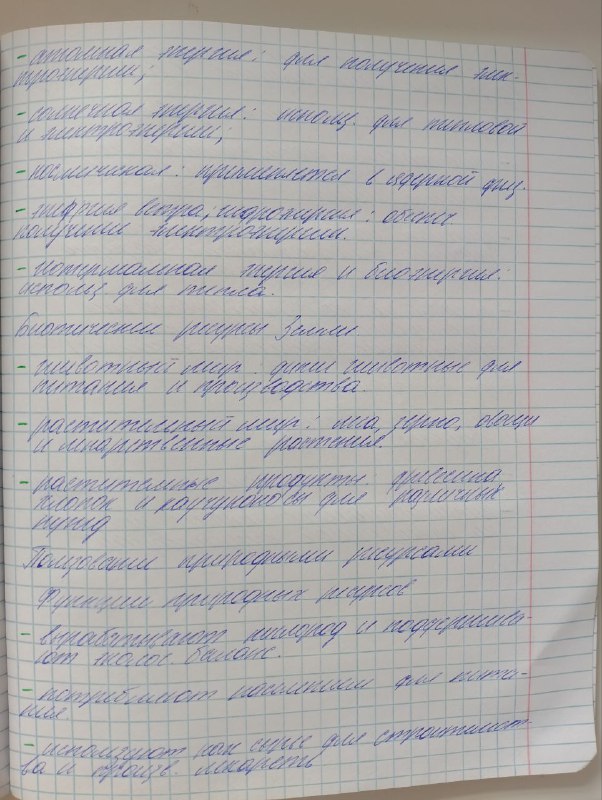 - атомная энергия: для получения элек-
троэнергии;
- солнечная энергия: использ. для тепловой
и электроэнергии;
- космическая: применяется в ядерной физ.
- энергия ветра; гидроэнергия: обеспеч.
получение электроэнергии.
- геотермальная энергия и биоэнергия:
использ. для тепла.
Биотические ресурсы Земли
- животный мир. дикие животные для
питания и производства.
- растительный мир: леса, зерно, овощи
и лекарственные растения.
- растительные продукты. древесина
хлопок и каучуконосы для различных
нужд
Пользование природными ресурсами
Функции природных ресурсов
- вырабатывают кислород и поддержива-
ют эколог. баланс.
- потребляют населением для пита-
ния
- используют как сырье для строительст-
ва и произв. лекарств